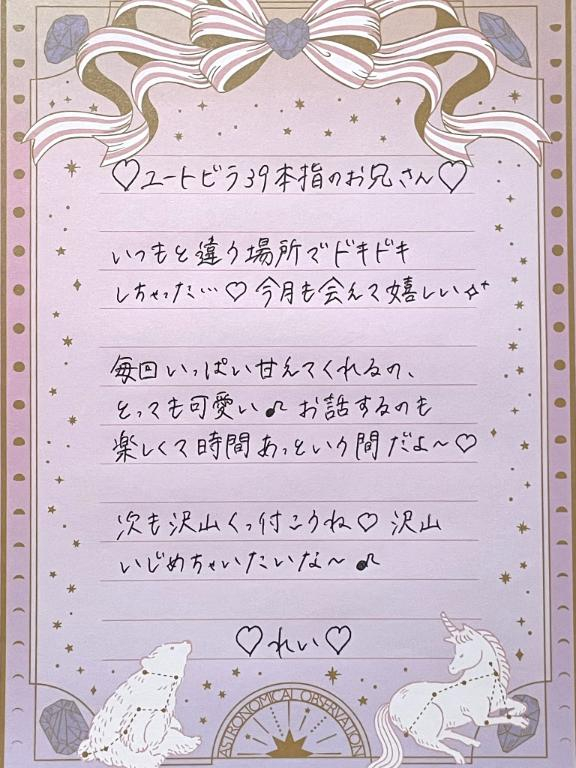 ♡ユートピラ39本指のお兄さん♡
いつもと違う場所でドキドキ
しちゃった…♡ 今月も会えて嬉しい✧⁺
毎回いっぱい甘えてくれるの、
とっても可愛い♪ お話するのも
楽しくて時間あっという間だよ〜♡
次も沢山くっ付こうね♡ 沢山
いじめちゃいたいな〜♪
♡れい♡
ASTRONOMICAL OBSERVATION